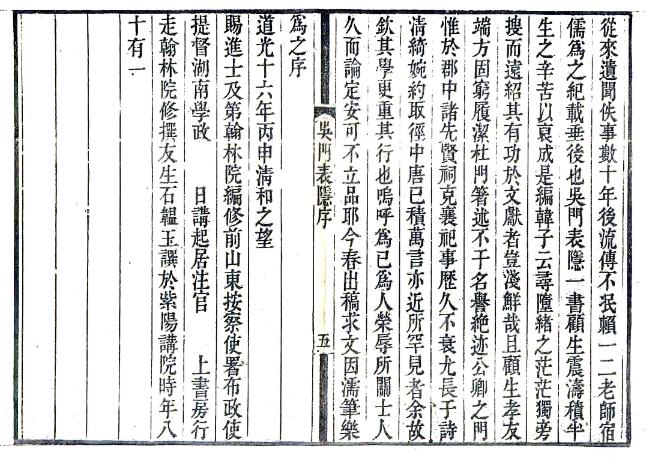 從來遺聞佚事數十年後流傳不泯賴一二老師宿
儒爲之紀載垂後也吳門表隱一書顧生震濤積半
生之辛苦以裒成是編韓子云尋墜緒之茫茫獨旁
搜而遠紹其有功於文獻者豈淺鮮哉且顧生孝友
端方固窮履潔杜門箸述不干名譽絶迹公卿之門
惟於郡中諸先賢祠克襄祀事歷久不衰尤長于詩
清綺婉約取徑中唐已積萬言亦近所罕見者余故
欽其學更重其行也嗚呼爲已爲人榮辱所關士人
久而論定安可不立品耶今春出稿求文因濡筆樂
吳門表隱序
五
爲之序
道光十六年丙申清和之望
賜進士及第翰林院編修前山東按察使署布政使
提督湖南學政 日講起居注官 上書房行
走翰林院修撰友生石韞玉譔於紫陽講院時年八
十有一